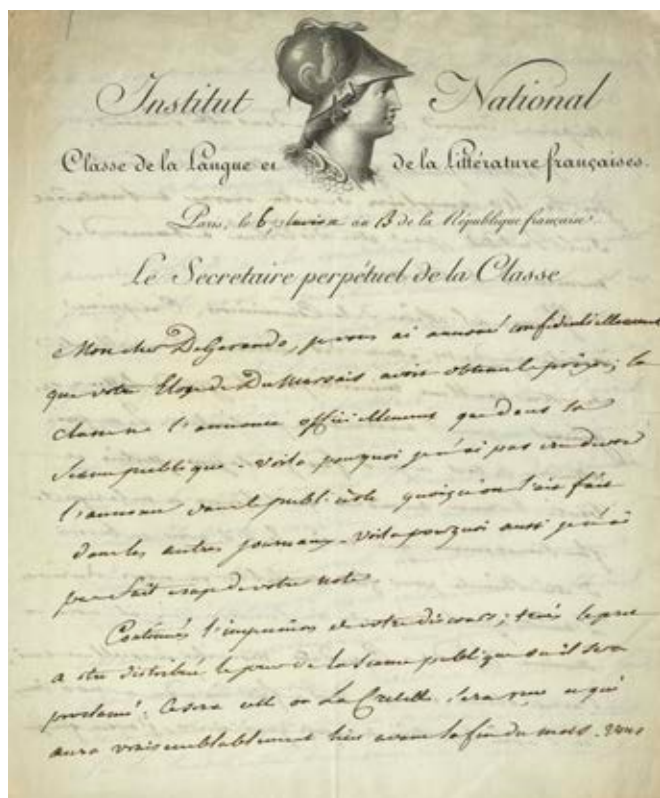 Institut National
Classe de la Langue et de la Littérature françaises.
Paris, le 6 pluviose an 13 de la République française.
Le Secretaire perpétuel de la Classe
Mon cher DeGerando, je vous ai annoncé confidentiellement
que votre Eloge de DuMarsais avoit obtenu le prix; la
classe ne l'annonce officiellement que dans sa
Seance publique. Voila pourquoi je n'ai pas cru devoir
l'annoncer dans le publiciste quoiqu'on l'ait fait
dans les autres journaux. Voila pourquoi aussi je n'ai
pas fait usage de votre note.
Continués l'impression de votre discours; tenés le pret
a etre distribué le jour de la Seance publique ou il sera
proclamé; Ce sera celle ou La Cretelle sera reçu ce qui
aura vraisemblablement lieu avant la fin du mois. Vous